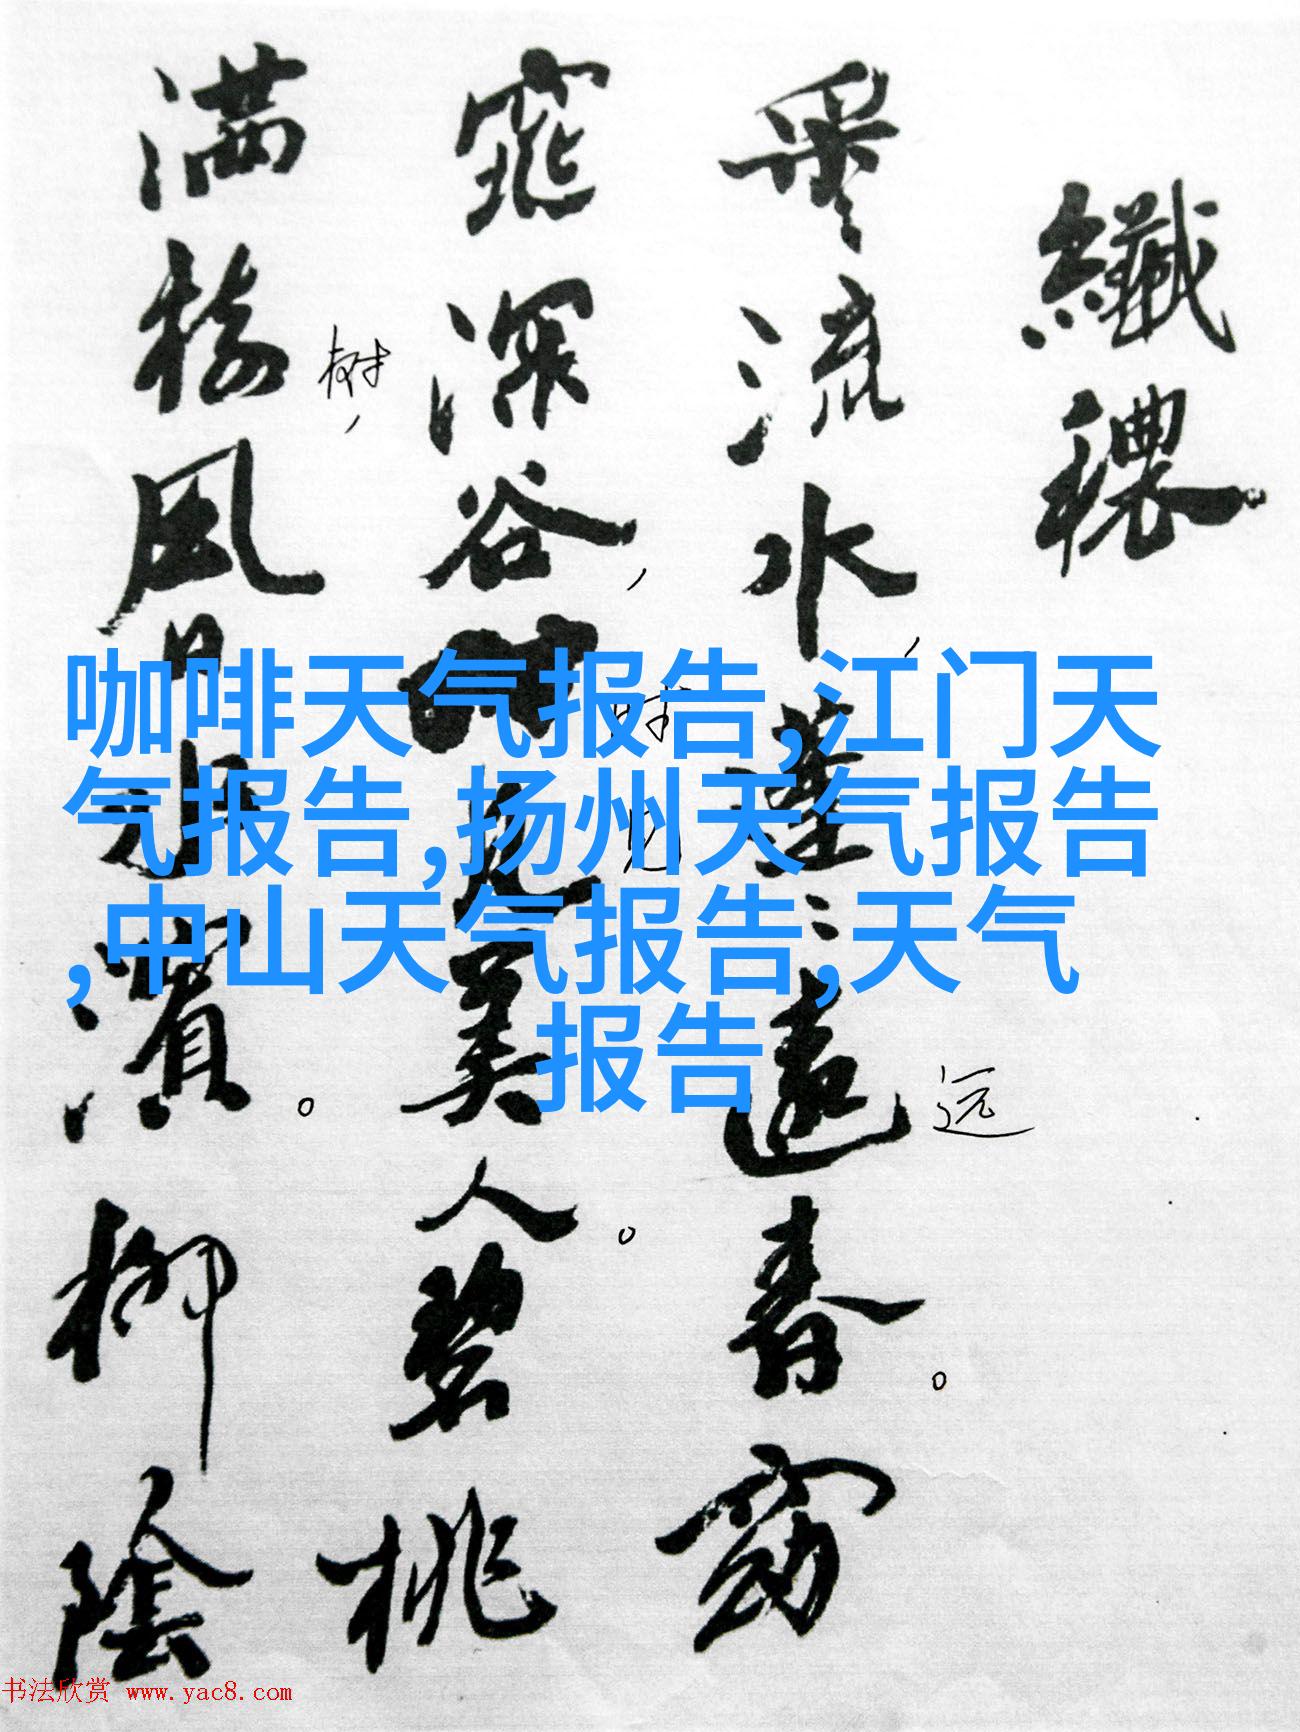 纖穠
采流水,蓬
遠春。窈
远
窕深谷,時見美人。碧桃
时
见
满樹風日水濱。柳陰
树,
咖啡天气报告,江门天
气报告,扬州天气报告
,中山天气报告,天气
报告
书法欣赏 www.yac8.com